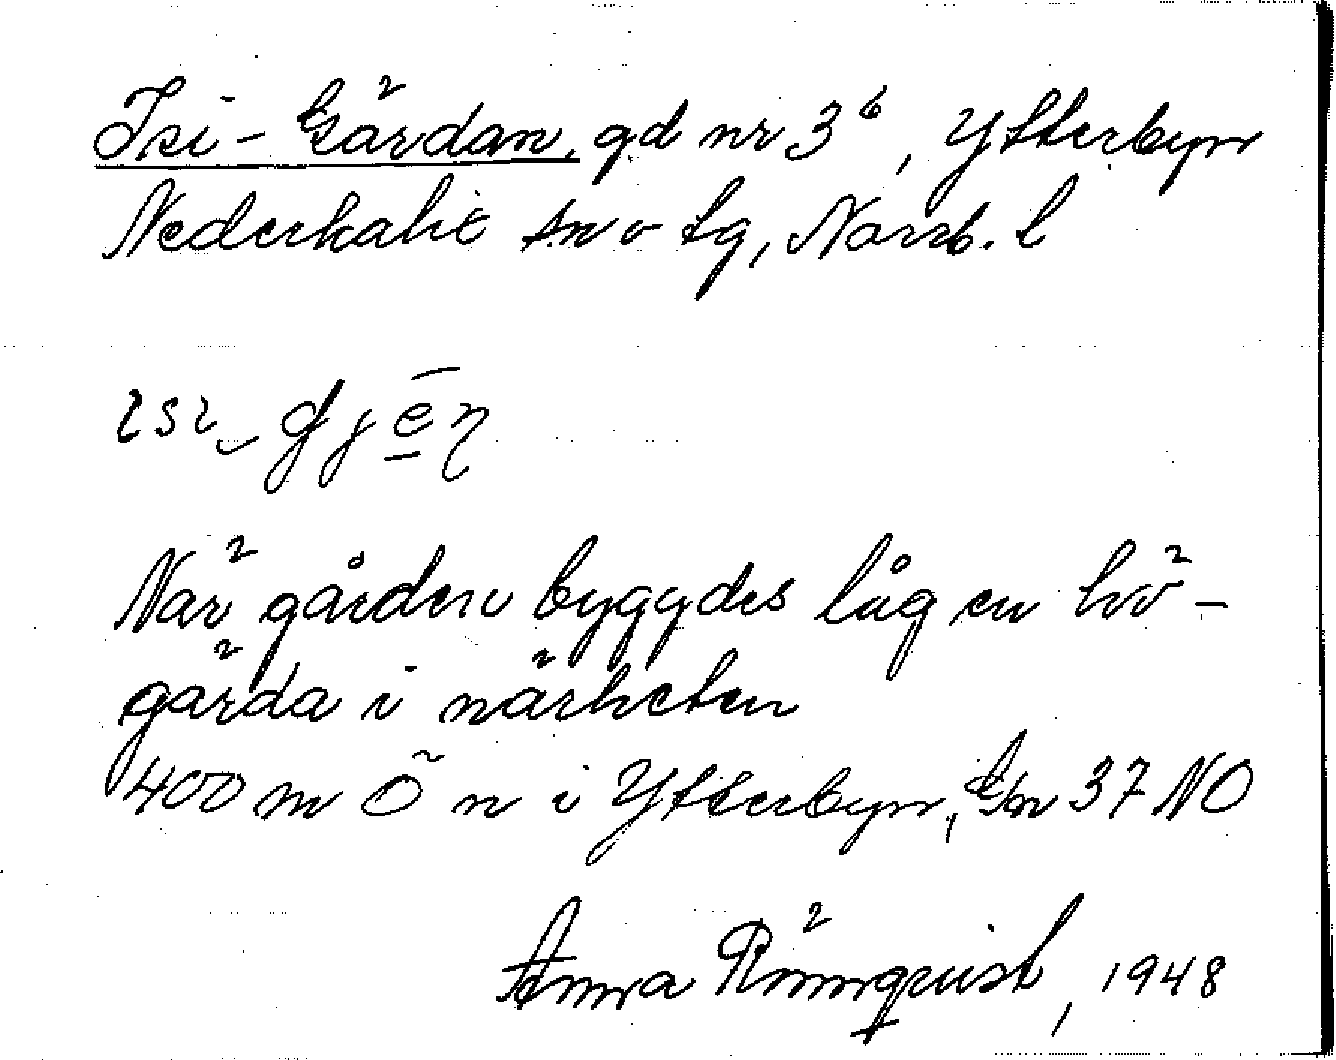 Isi-Gärdan, gd nr 3⁶, Ytterbyn
Nederkalix sn o tg, Norrb. l
När gården byggdes låg en hö-
gärda i närheten
400 m Ö n i Ytterbyn, Gn 37 NO
Anna Rönnqvist, 1948